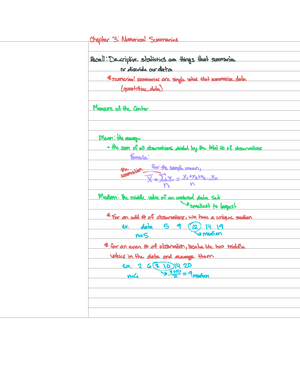 Chapter 3: Numerical Summaries
Recall: Descriptive statistics are things that summarize
or describe our data
* numerical summaries are single values that summarize data
(quantitative data)
Measures of the Center
Mean: the average
- the sum of all observations divided by the total # of observations
Formula:
For the sample mean,
the summation
X̄ = Σx / n = x₁+x₂+x₃ ... xₙ / n
Median: the middle value of an ordered data set
smallest to largest
* For an odd # of observations, we have a unique median
ex. data 5 9 12 14 19
n=5 median
* For an even # of observation, locate the two middle
values in the data and average them
ex. 2 6 8 10 14 20
n=6 8+10 / 2 = 9 median